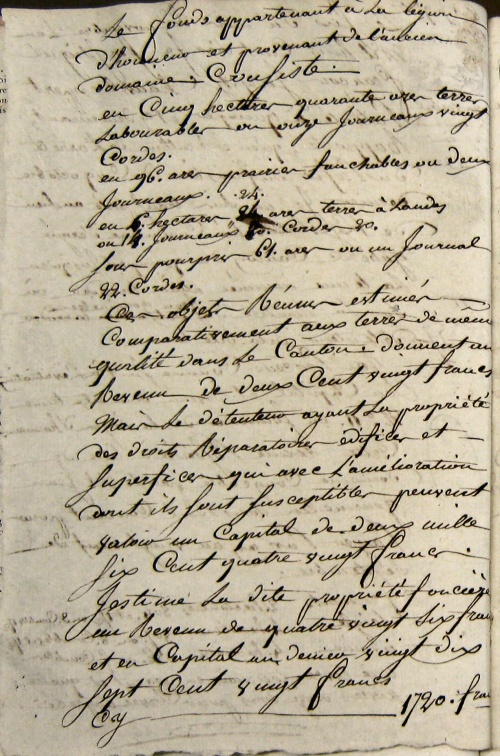 Le fonds appartenant à La légion
d'honneur et provenant de l'ancien
domaine : Consiste.
en Cinq hectares quarante ares terres
Labourables ou onze Journeaux vingt
Cordes.
en 96. ares prairies fauchables ou deux
Journeaux. 24.
en 6. hectares ares terres à Landes
ou 14. Journeaux Cordes &c.
sous pourpris 61. ares ou un Journal
22. Cordes.
Ces objets Réunis estimés
Comparativement aux terres de même
qualité dans Le Canton : donnent un
Revenu de deux Cent vingt francs
Mais Le détenteur ayant La propriété
des droits Réparatoires édifices et
Superfices qui avec L'amélioration
dont ils sont susceptibles peuvent
valoir un Capital de deux mille
six Cent quatre vingt francs.
J'estime La dite propriété foncière
un Revenu de quatre vingt six francs
et en Capital au denier vingt dix
sept Cent vingt francs
Cy 1720. fra